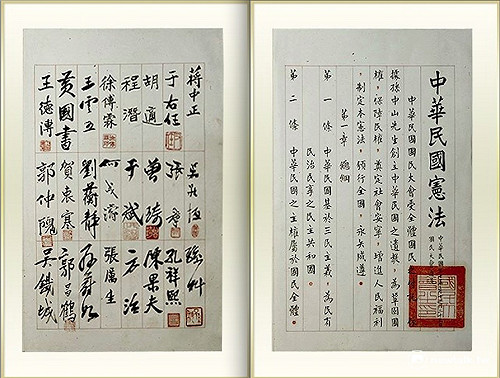 中華民國憲法
中華民國
國民大會
中華民國國民大會受全體國民
據孫中山先生創立中華民國之遺教，為鞏固國
權，保障民權，奠定社會安寧，增進人民福利
，制定本憲法，頒行全國，永矢咸遵。
第一章 總綱
第一條 中華民國基於三民主義，為民有
民治民享之民主共和國。
第二條 中華民國之主權屬於國民全體。
蔣中正
于右任 孔祥熙
胡適 曾琦 陳果夫
程潛 于斌
徐傅霖 何成濬 張厲生
王雲五 劉蘅靜
黃國書 賀衷寒
王德溥 郭仲隗 吳鐵城